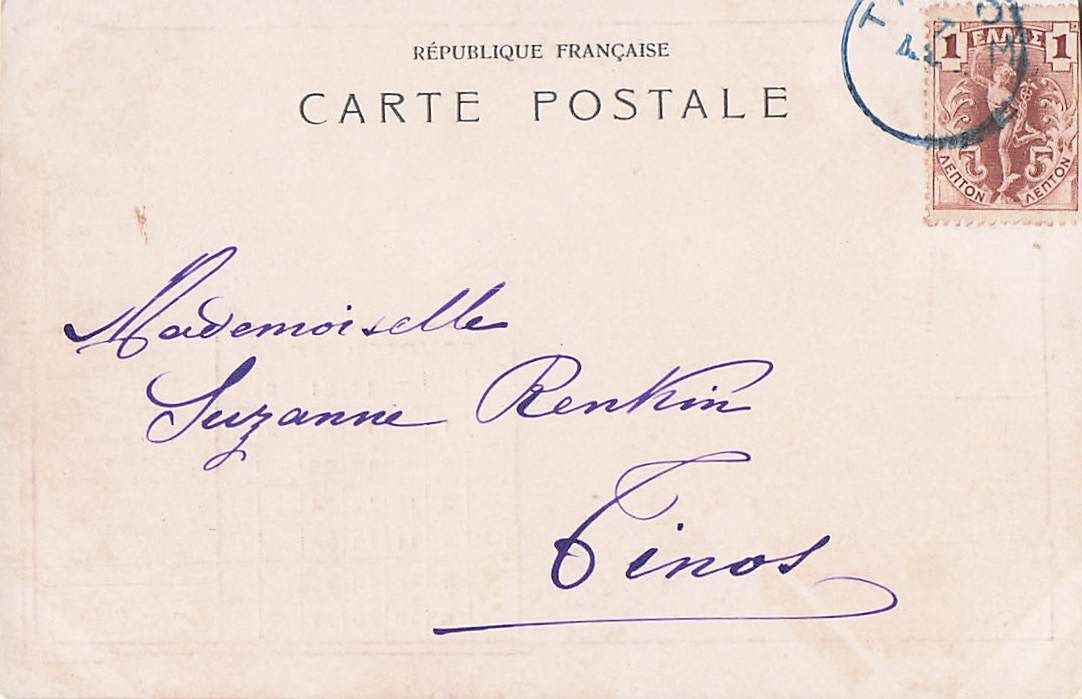 RÉPUBLIQUE FRANÇAISE
CARTE POSTALE
1 ΕΛΛΑΣ 1
ΛΕΠΤΟΝ ΛΕΠΤΟΝ
Mademoiselle
Suzanne Renkin
Tinos